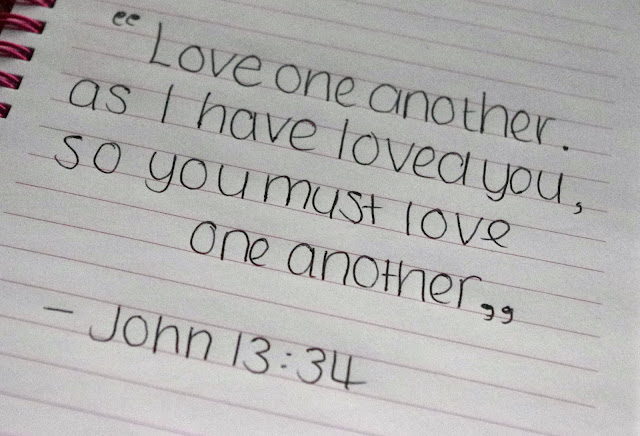 “Love one another.
as I have loved you,
so you must love
one another,,
- John 13:34